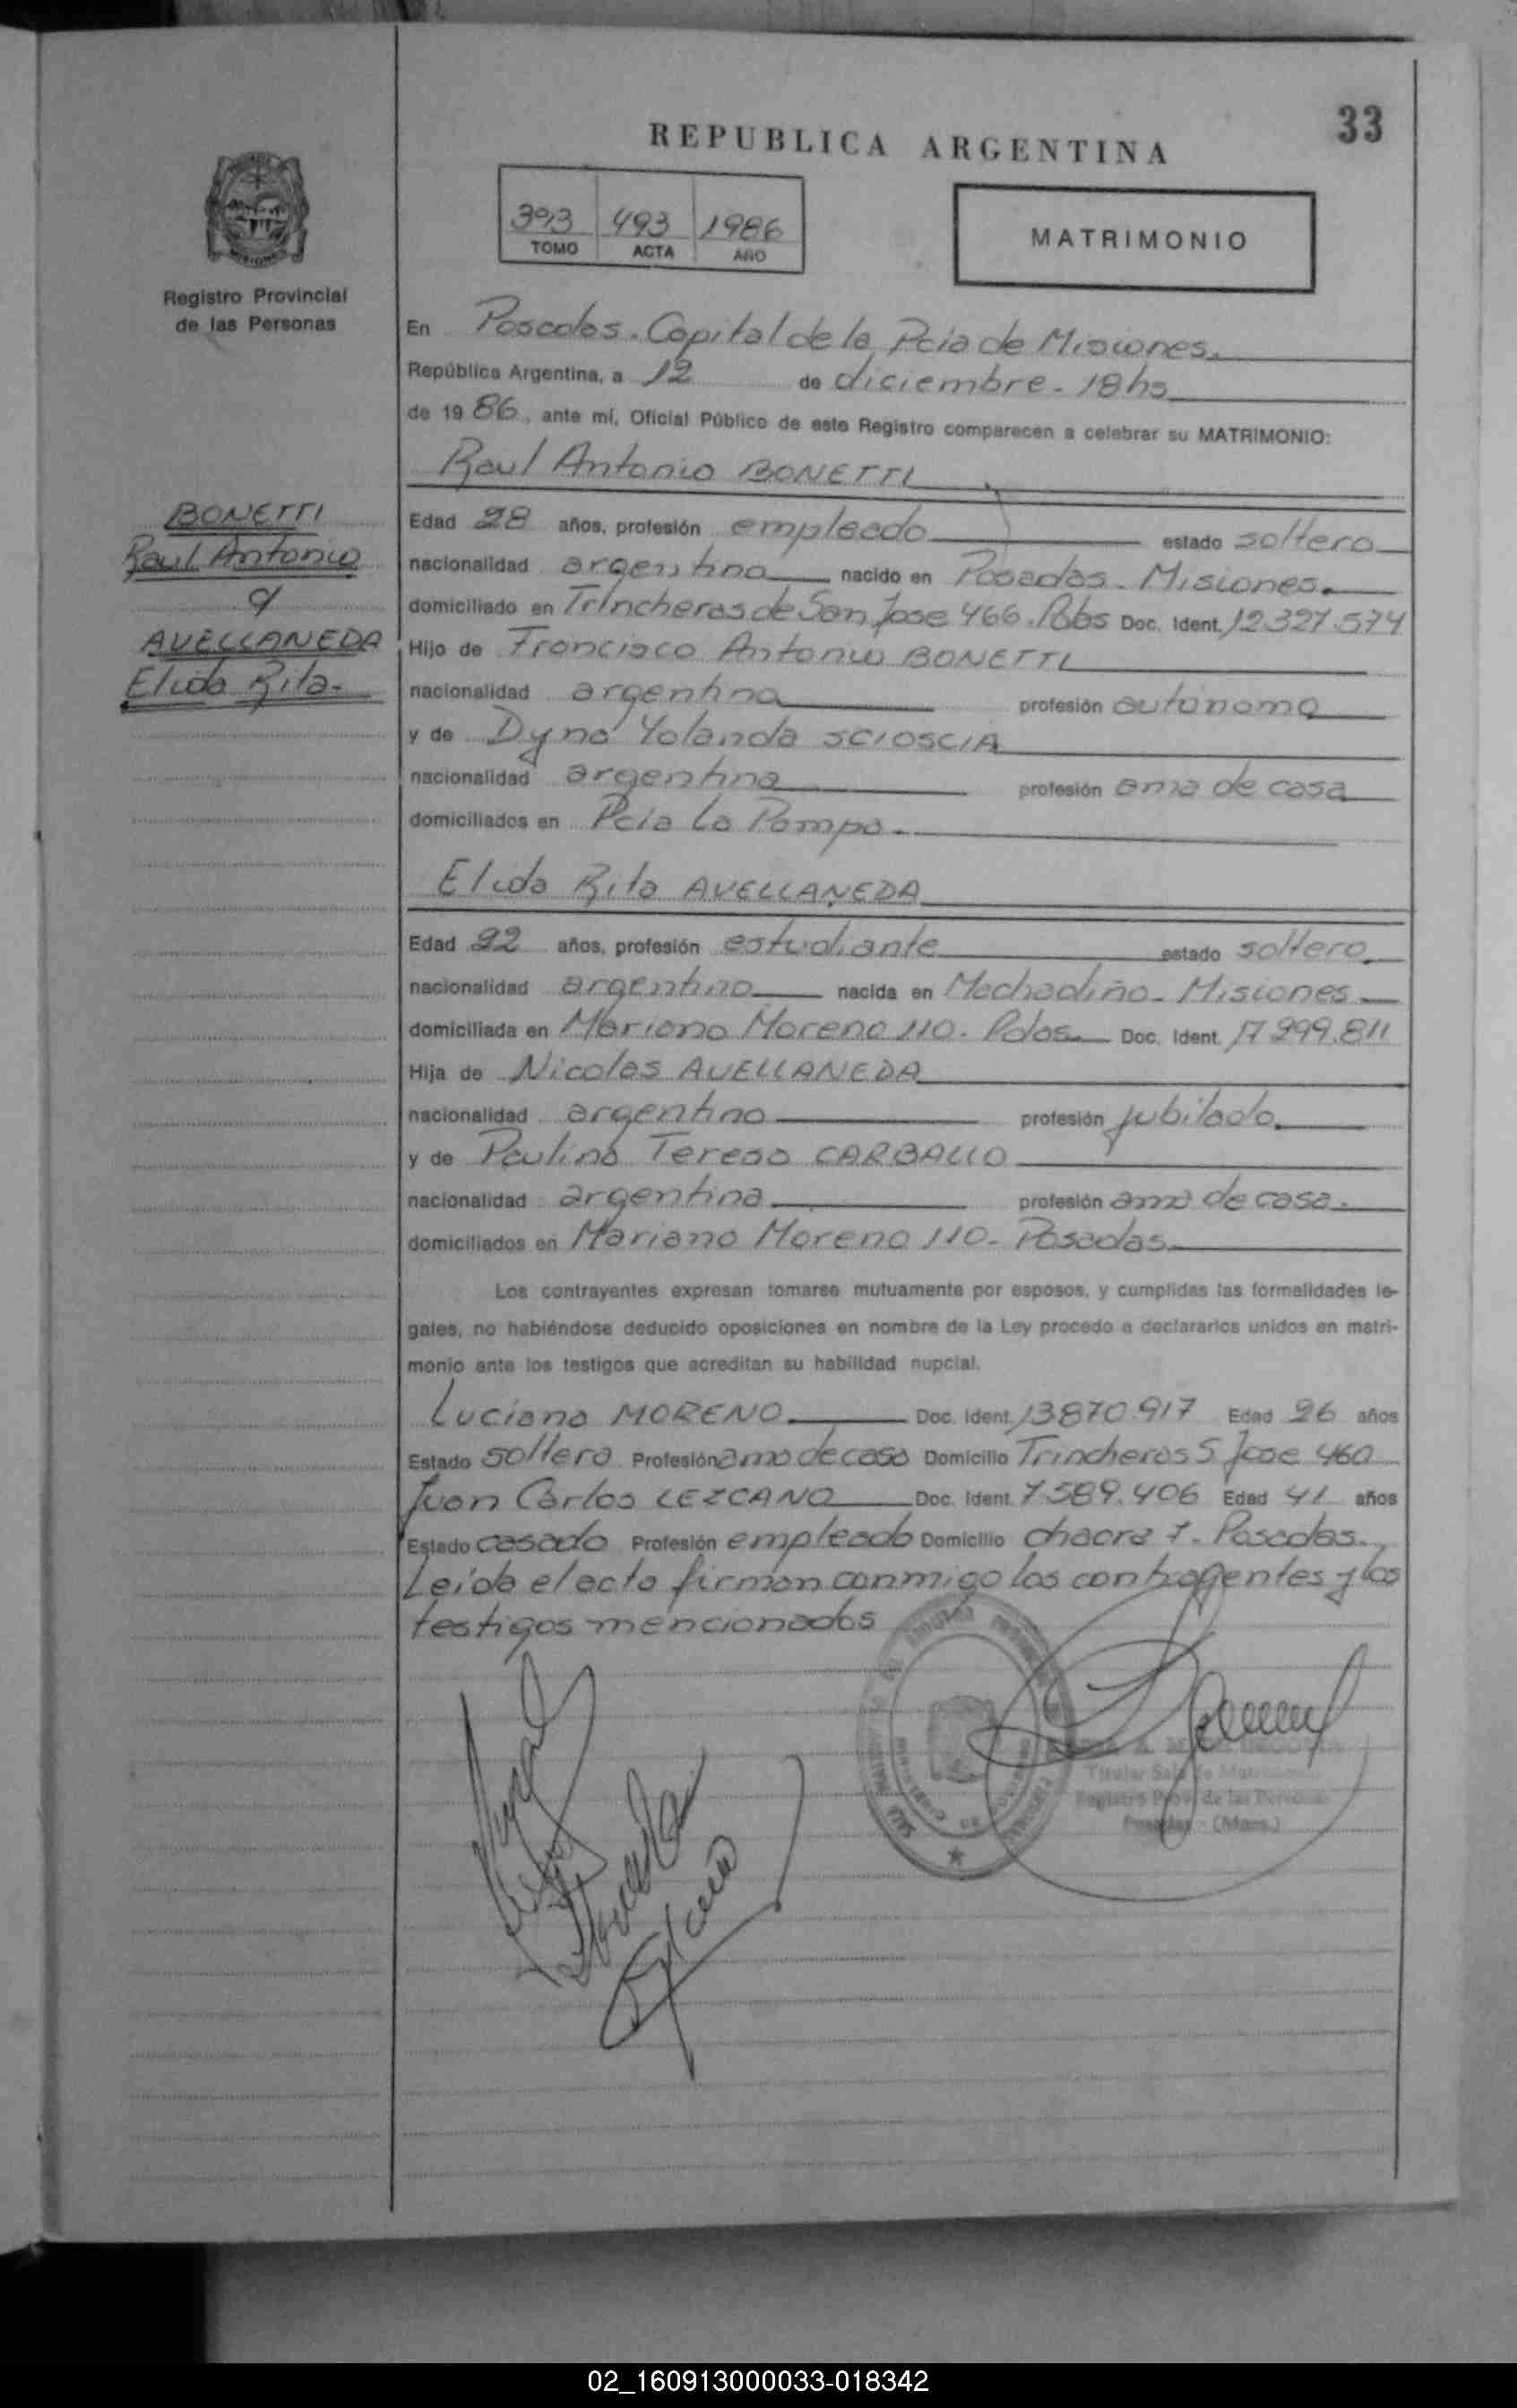 33
REPUBLICA ARGENTINA
493 1986
TOMO ACTA AÑO
MATRIMONIO
Registro Provincial
de las Personas
En Posadas. Capital de la Pcia de Misiones.
República Argentina, a 12 de diciembre - 18 hs
de 1986, ante mí, Oficial Público de este Registro comparecen a celebrar su MATRIMONIO:
Raul Antonio BONETTI
BONETTI
Raul Antonio
AVELLANEDA
Elida Rita-
Edad 28 años, profesión empleado estado soltero
nacionalidad argentina nacido en Posadas - Misiones.
domiciliado en Trincheras de San Jose 466. Doc. Ident. 12.327.574
Hijo de Francisco Antonio BONETTI
nacionalidad argentina profesión autónomo
y de Dyna Yolanda SCIOSCIA
nacionalidad argentina profesión ama de casa
domiciliados en Pcia La Pampa.
Elida Rita AVELLANEDA
Edad 22 años, profesión estudiante estado soltera
nacionalidad argentina nacida en Machadiño - Misiones
domiciliada en Mariano Moreno 110. Pdas. Doc. Ident. 17.299.811
Hija de Nicolas AVELLANEDA
nacionalidad argentino profesión jubilado.
y de Paulina Teresa CARBALLO
nacionalidad argentina profesión ama de casa.
domiciliados en Mariano Moreno 110 - Posadas
Los contrayentes expresan tomarse mutuamente por esposos, y cumplidas las formalidades le-
gales, no habiéndose deducido oposiciones en nombre de la Ley procedo a declararlos unidos en matri-
monio ante los testigos que acreditan su habilidad nupcial.
Luciana MORENO Doc. Ident. 13.870.917 Edad 26 años
Estado soltera Profesión ama de casa Domicilio Trincheras S Jose 460
Juan Carlos LEZCANO Doc. Ident. 7.589.406 Edad 41 años
Estado casado Profesión empleado Domicilio chacra 7. Posadas.
Leida el acta firman conmigo los contrayentes y los
testigos mencionados
Titular Sala de Matrimonios
Registro Prov. de las Personas
Posadas - (Mnes.)
02_160913000033-018342